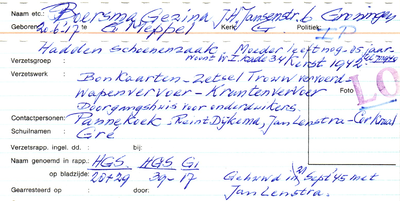 Naam etc.: Boersma Gezina J.H. Jansenstr. 6 Groningen
Geboren: 20.6.17 te Meppel Kerk: G Politiek:
Hadden schoenenzaak. Moeder leeft nog - 85 jaar
Verzetsgroep: Kerst 1942
Verzetswerk: Bonkaarten - Zetsel Trouw vervoerd
Wapenvervoer - Krantenvervoer Foto
Doorgangshuis voor onderduikers.
Contactpersonen: Pannekoek - Reint Dijkema, Jan Lenstra -
Schuilnaam: Gré
Verzetsrapp. ingel. dd.: bij:
Naam genoemd in rapp.: HGS. HGS G1
op bladzijde: 20+29 39-17
Gehuwd in Sept '45 met
Gearresteerd op: door: Jan Lenstra.
LO